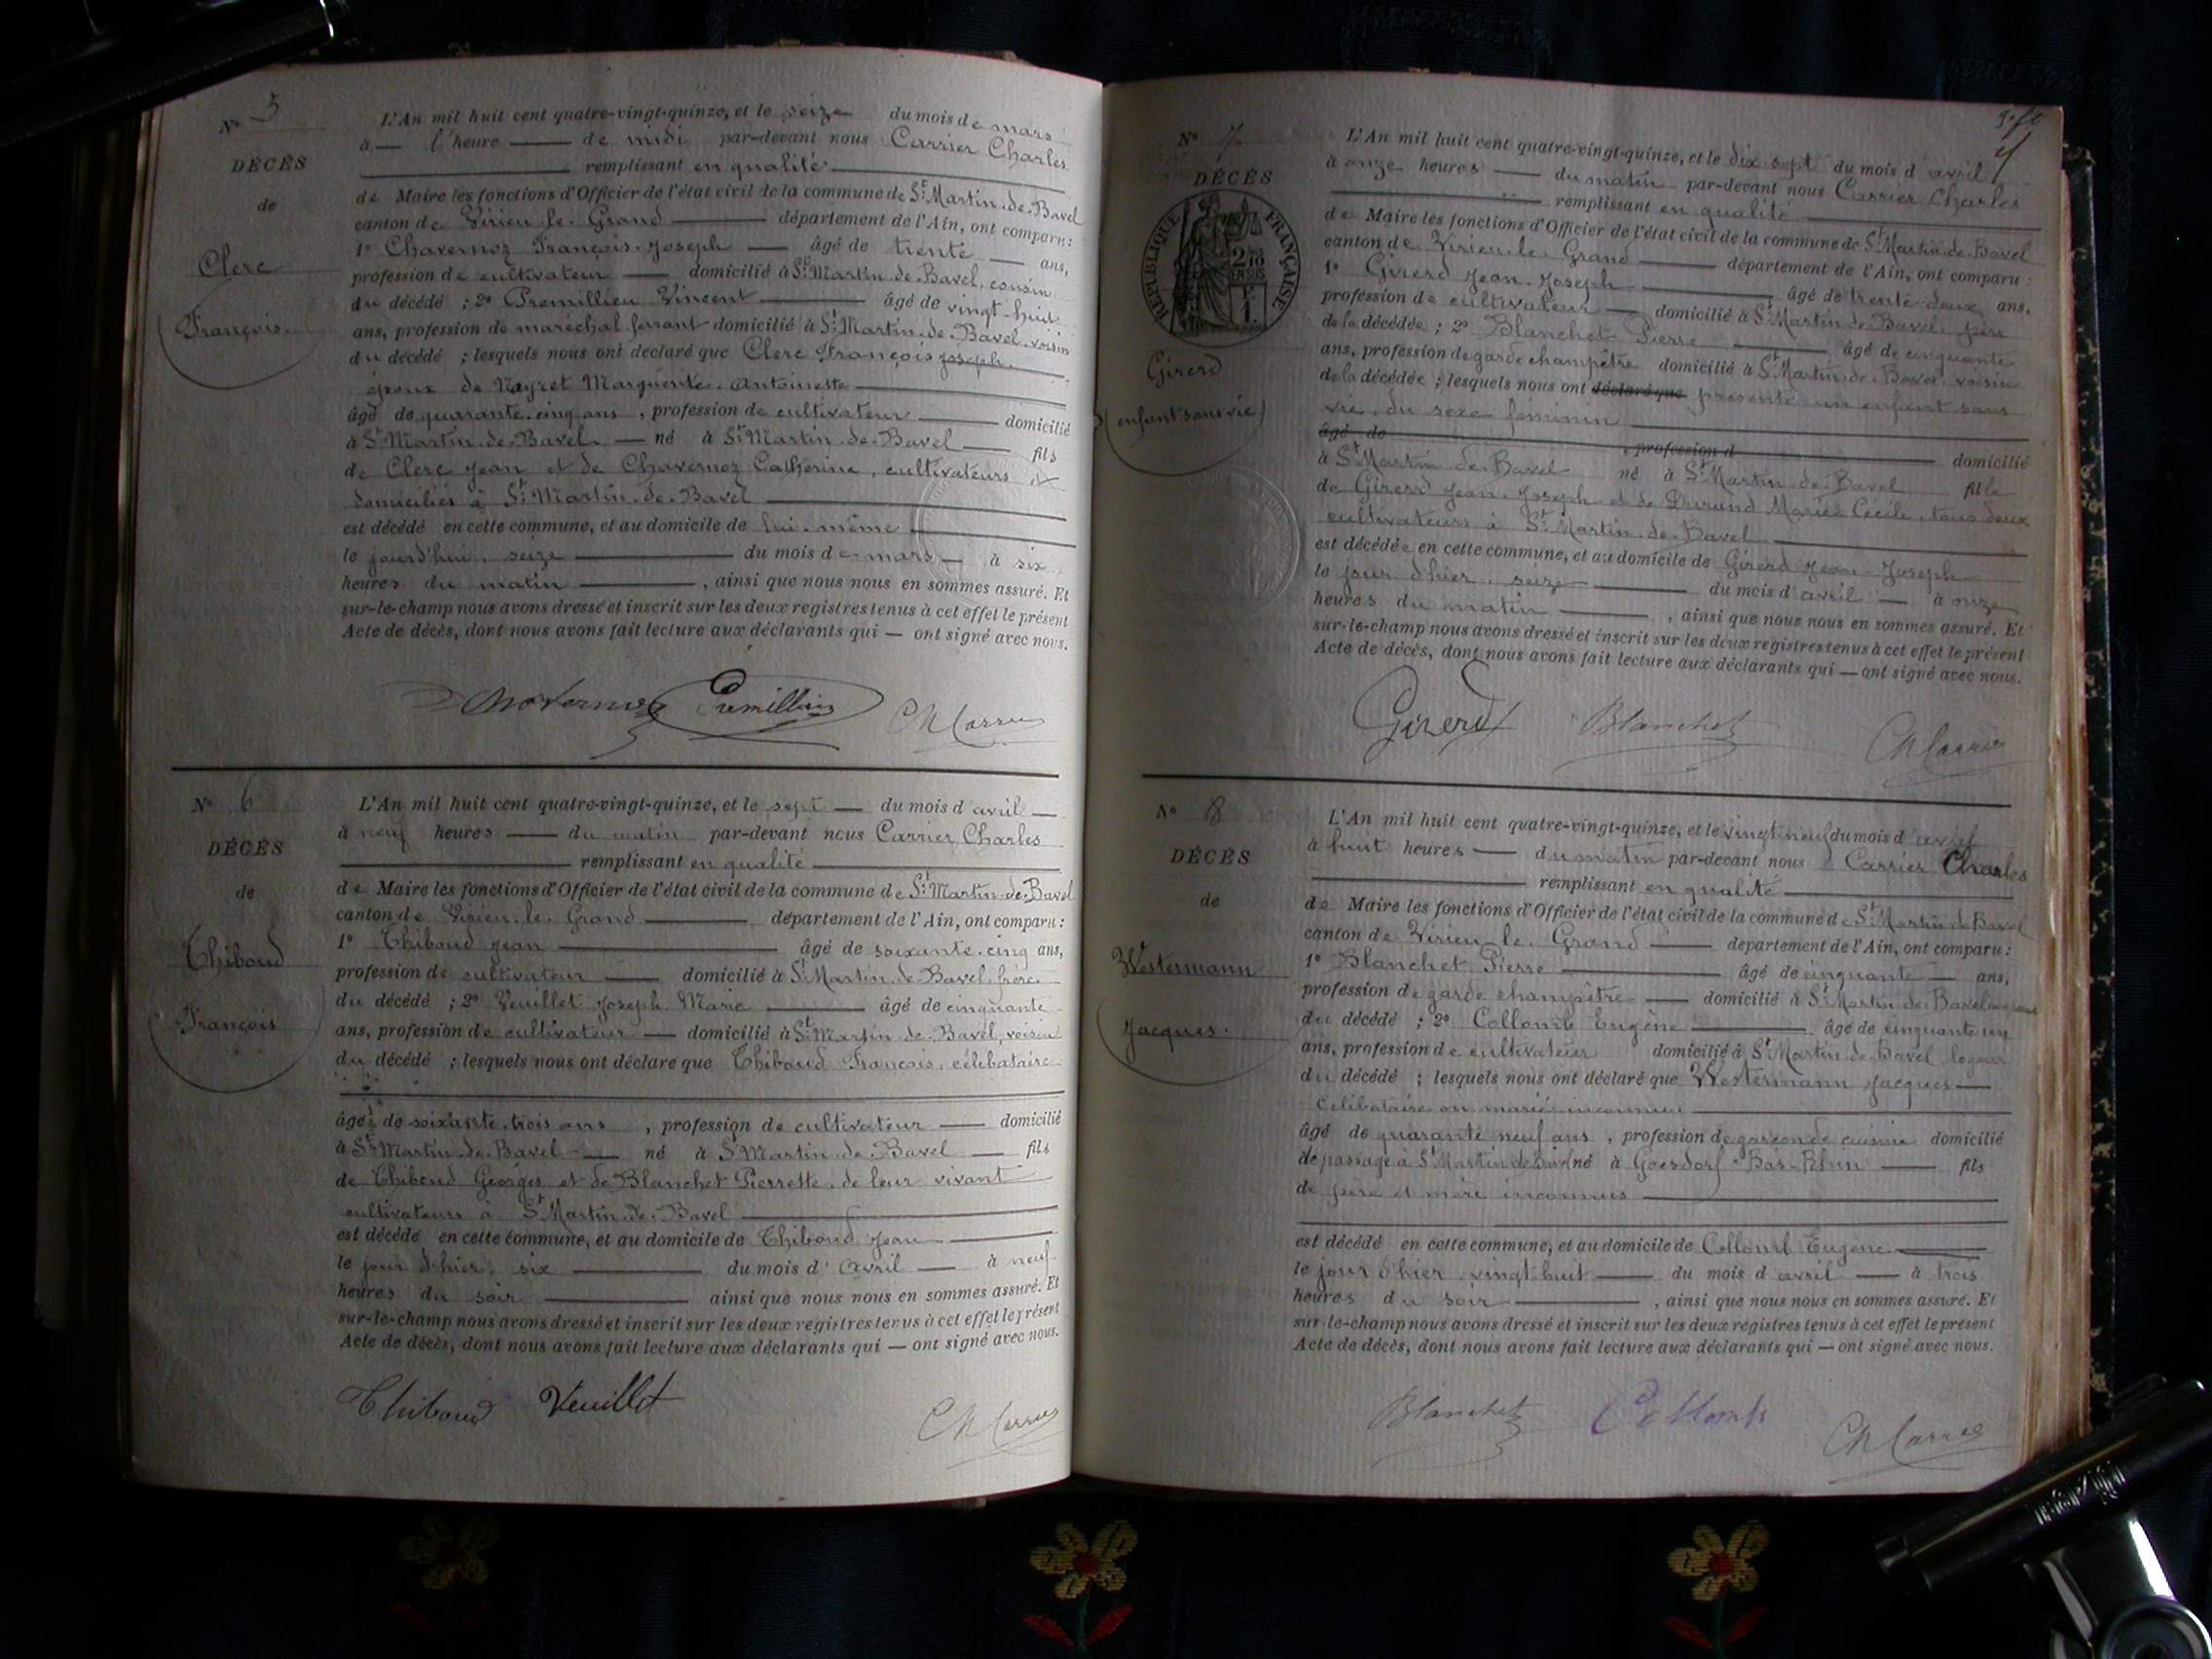 N° 5
DÉCÈS
de
Clerc
François
L'An mil huit cent quatre-vingt-quinze, et le seize du mois de mars
à — l'heure — de midi par-devant nous Carrier Charles
remplissant en qualité
de Maire les fonctions d'Officier de l'état civil de la commune de St Martin-de-Bavel
canton de Virieu-le-Grand — département de l'Ain, ont comparu:
1° Chavernoz François-Joseph — âgé de trente — ans,
profession de cultivateur — domicilié à St Martin de Bavel, cousin
du décédé ; 2° Premillieu Vincent — âgé de vingt-huit
ans, profession de maréchal ferrant domicilié à St Martin-de-Bavel, voisin
du décédé ; lesquels nous ont déclaré que Clerc François Joseph
époux de Nayret Marguerite-Antoinette
âgé de quarante-cinq ans, profession de cultivateur — domicilié
à St Martin-de-Bavel — né à St Martin-de-Bavel — fils
de Clerc Jean et de Chavernoz Catherine, cultivateurs
domiciliés à St Martin-de-Bavel
est décédé en cette commune, et au domicile de lui-même
le jourd'hui, seize — du mois de mars — à six
heures du matin —, ainsi que nous nous en sommes assuré. Et
sur-le-champ nous avons dressé et inscrit sur les deux registres tenus à cet effet le présent
Acte de décès, dont nous avons fait lecture aux déclarants qui — ont signé avec nous.
Chavernoz Premillieu Ch Carrier
N° 6
DÉCÈS
de
Thiboud
François
L'An mil huit cent quatre-vingt-quinze, et le sept — du mois d'avril —
à neuf heures — du matin par-devant nous Carrier Charles
remplissant en qualité
de Maire les fonctions d'Officier de l'état civil de la commune de St Martin-de-Bavel
canton de Virieu-le-Grand — département de l'Ain, ont comparu:
1° Thiboud Jean — âgé de soixante-cinq ans,
profession de cultivateur — domicilié à St Martin-de-Bavel, frère
du décédé ; 2° Veuillet Joseph Marie — âgé de cinquante
ans, profession de cultivateur — domicilié à St Martin-de-Bavel, voisin
du décédé ; lesquels nous ont déclaré que Thiboud François, célibataire
âgé de soixante-trois ans, profession de cultivateur — domicilié
à St Martin-de-Bavel — né à St Martin-de-Bavel — fils
de Thiboud Georges et de Blanchet Pierrette, de leur vivant
cultivateurs à St Martin-de-Bavel
est décédé en cette commune, et au domicile de Thiboud Jean
le jour d'hier, six — du mois d'avril — à neuf
heures du soir — ainsi que nous nous en sommes assuré. Et
sur-le-champ nous avons dressé et inscrit sur les deux registres tenus à cet effet le présent
Acte de décès, dont nous avons fait lecture aux déclarants qui — ont signé avec nous.
Thiboud Veuillet Ch Carrier
N° 7
DÉCÈS
RÉPUBLIQUE FRANÇAISE
2/10 EN SUS
Girerd
(enfant sans vie)
L'An mil huit cent quatre-vingt-quinze, et le dix-sept du mois d'avril
à onze heures — du matin par-devant nous Carrier Charles
remplissant en qualité
de Maire les fonctions d'Officier de l'état civil de la commune de St Martin-de-Bavel
canton de Virieu-le-Grand — département de l'Ain, ont comparu :
1° Girerd Jean-Joseph — âgé de trente-deux ans,
profession de cultivateur — domicilié à St Martin de Bavel, père
de la décédée ; 2° Blanchet Pierre — âgé de cinquante
ans, profession de garde champêtre domicilié à St Martin-de-Bavel, voisin
de la décédée ; lesquels nous ont déclaré que présenté un enfant sans
vie, du sexe féminin
âgé de , profession d — domicilié
à St Martin-de-Bavel né à St Martin-de-Bavel fille
de Girerd Jean-Joseph et de Durand Marie Cécile, tous deux
cultivateurs à St Martin-de-Bavel
est décédée en cette commune, et au domicile de Girerd Jean-Joseph
le jour d'hier, seize — du mois d'avril — à onze
heures du matin —, ainsi que nous nous en sommes assuré. Et
sur-le-champ nous avons dressé et inscrit sur les deux registres tenus à cet effet le présent
Acte de décès, dont nous avons fait lecture aux déclarants qui — ont signé avec nous.
Girerd Blanchet Ch Carrier
N° 8
DÉCÈS
de
Westermann
Jacques
L'An mil huit cent quatre-vingt-quinze, et le vingt neuf du mois d'avril
à huit heures — du matin par-devant nous Carrier Charles
remplissant en qualité
de Maire les fonctions d'Officier de l'état civil de la commune de St Martin de Bavel
canton de Virieu-le-Grand — département de l'Ain, ont comparu:
1° Blanchet Pierre — âgé de cinquante — ans,
profession de garde champêtre — domicilié à St Martin-de-Bavel
du décédé ; 2° Collomb Eugène — âgé de cinquante un
ans, profession de cultivateur domicilié à St Martin de Bavel logeur
du décédé ; lesquels nous ont déclaré que Westermann Jacques —
célibataire ou marié inconnu
âgé de quarante neuf ans, profession de garçon de cuisine domicilié
de passage à St Martin de Bavel né à Goersdorf Bas-Rhin — fils
de père et mère inconnus
est décédé en cette commune, et au domicile de Collomb Eugène
le jour d'hier vingt huit — du mois d'avril — à trois
heures du soir —, ainsi que nous nous en sommes assuré. Et
sur-le-champ nous avons dressé et inscrit sur les deux registres tenus à cet effet le présent
Acte de décès, dont nous avons fait lecture aux déclarants qui — ont signé avec nous.
Blanchet Collomb Ch Carrier